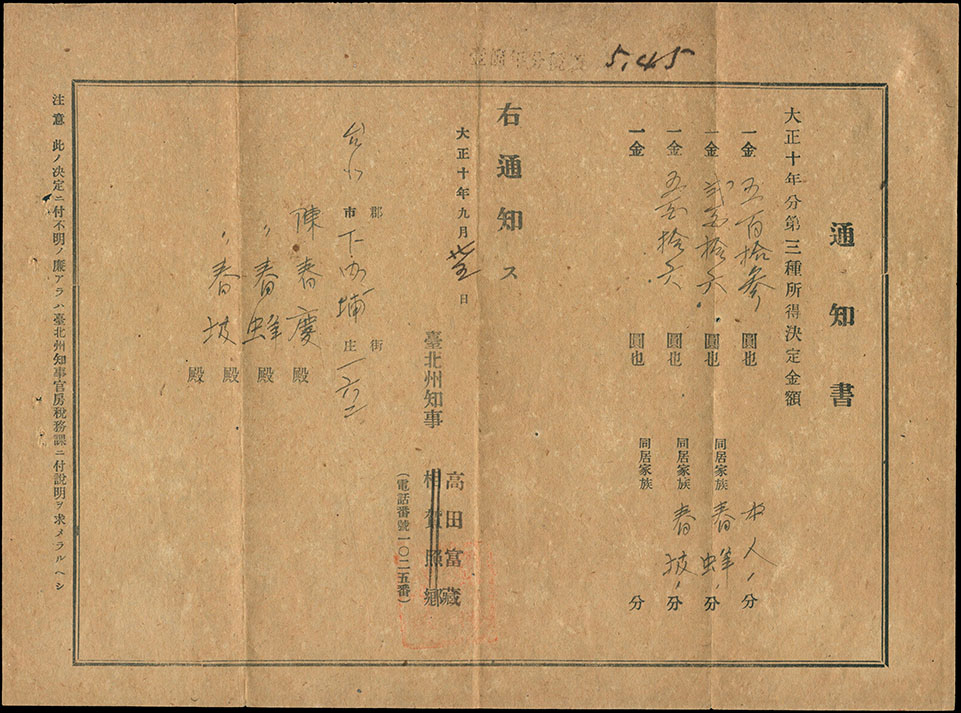 5.45
通知書
大正十年分第三種所得決定金額
一金 五百拾參 圓也 本人ノ分
一金 弐百拾六 圓也 同居家族 春蜂ノ分
一金 五百拾六 圓也 同居家族 春坡ノ分
一金 圓也 同居家族 分
右通知ス
大正十年九月廿五日
臺北州知事 高田富藏
相賀照鄉
(電話番號一〇二五番)
郡 街
台北市下內埔庄一六二
陳春慶殿
〃春蜂殿
〃春坡殿
殿
注意 此ノ決定ニ付不明ノ廉アラハ臺北州知事官房稅務課ニ付說明ヲ求メラルヘシ